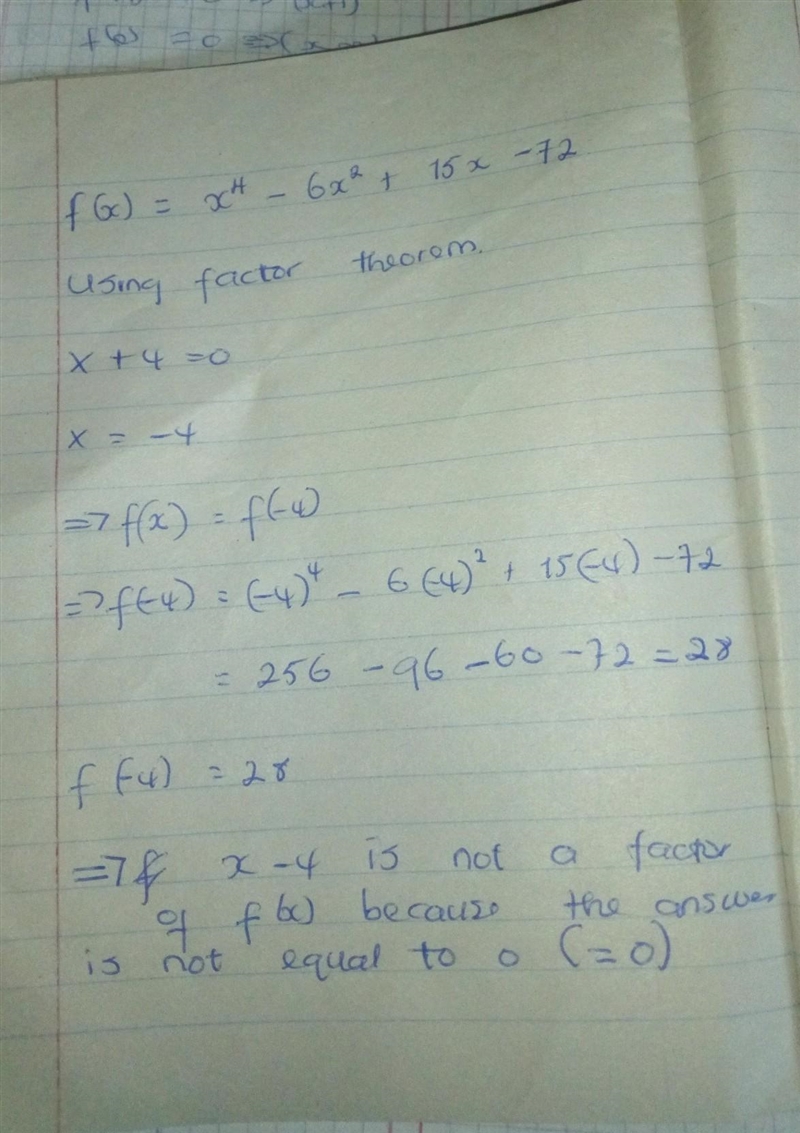 f(6) = 0 =>(x
f(x) = x⁴ - 6x² + 15x - 72
Using factor theorem.
x + 4 = 0
x = -4
=> f(x) = f(-4)
=> f(-4) = (-4)⁴ - 6(-4)² + 15(-4) - 72
= 256 - 96 - 60 - 72 = 28
f(-4) = 28
=> x - 4 is not a factor
of f(x) because the answer
is not equal to 0 (= 0)